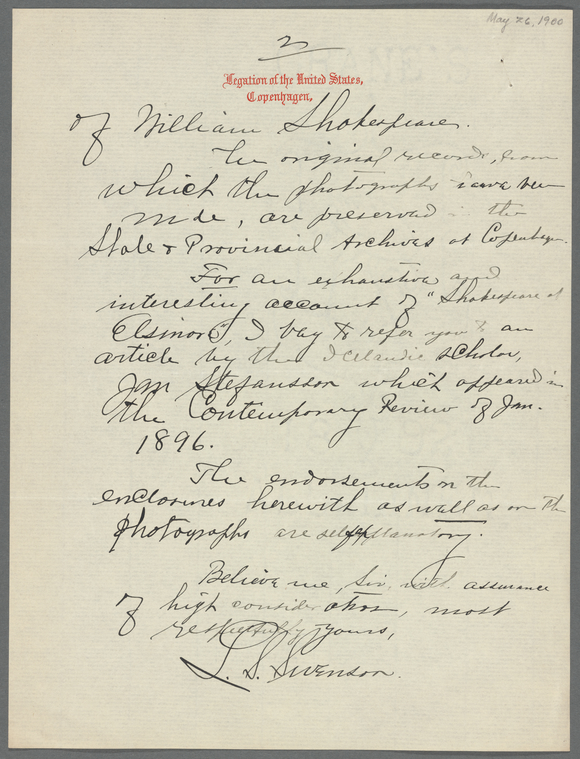 May 26, 1900
2
Legation of the United States,
Copenhagen,
of William Shakespeare.
The original records, from
which the photographs have been
made, are preserved in the
State & Provincial Archives at Copenhagen.
For an exhaustive and
interesting account of "Shakespeare at
Elsinore", I beg to refer you to an
article by the Icelandic scholar,
Jan Stefansson which appeared in
the Contemporary Review of Jan.
1896.
The endorsements on the
enclosures herewith as well as on the
photographs are selfexplanatory.
Believe me, Sir, with assurance
of high consideration, most
respectfully yours,
L. S. Swenson.